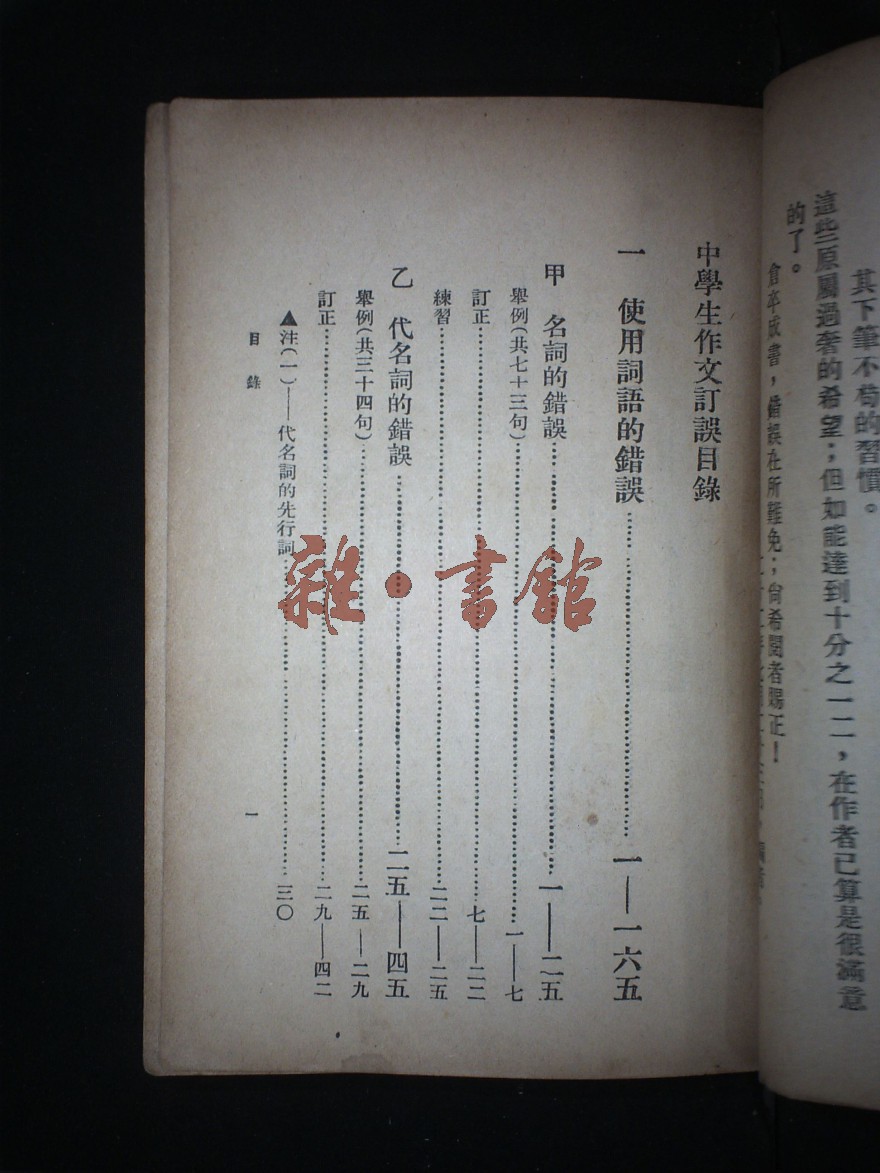 其下筆不苟的習慣。
這些原屬過奢的希望；但如能達到十分之一二，在作者已算是很滿意
的了。
倉卒成書，錯誤在所難免；尙希閱者賜正！
中學生作文訂誤目錄
一 使用詞語的錯誤…………一——一六五
甲 名詞的錯誤…………一——二五
舉例(共七十三句)…………一——七
訂正…………七——二二
練習…………二二——二五
乙 代名詞的錯誤…………二五——四五
舉例(共三十四句)…………二五——二九
訂正…………二九——四二
▲注(一)——代名詞的先行詞…………三〇
目錄 一
雜·書館